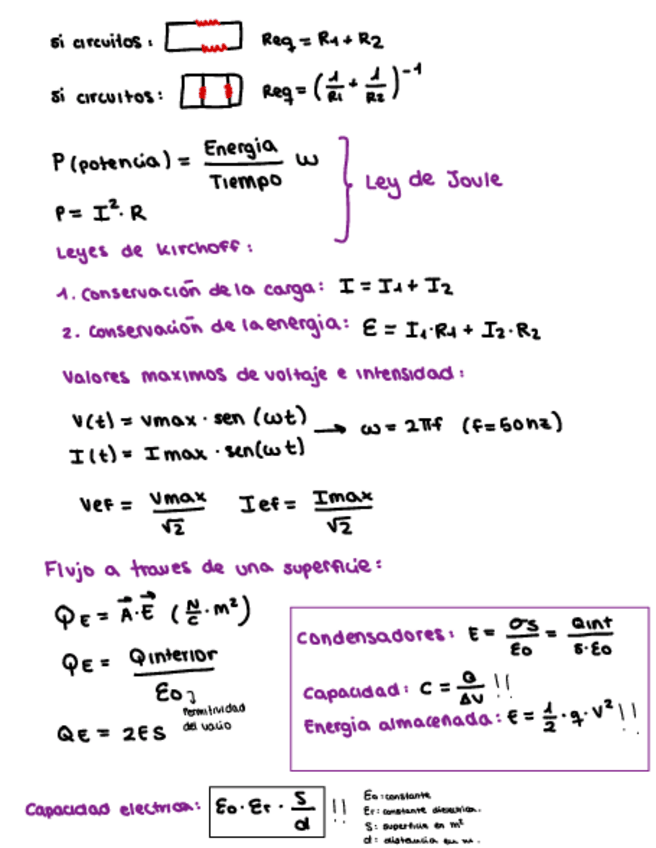 si circuitos: Req = R1 + R2
si circuitos: Req = (1/R1 + 1/R2)^-1
P(potencia) = Energia/Tiempo W
P = I²·R
Ley de Joule
Leyes de Kirchoff:
1. Conservación de la carga: I = I1 + I2
2. Conservación de la energia: Ɛ = I1·R1 + I2·R2
Valores maximos de voltaje e intensidad:
V(t) = Vmax · sen (ωt)
I(t) = Imax · sen(ωt)
→ ω = 2πf (f=50hz)
Vef = Vmax/√2 Ief = Imax/√2
Flujo a traves de una superficie:
ΦE = A⃗·E⃗ (N/C · m²)
ΦE = Qinterior/Ɛo
Permitividad
del vacio
QE = 2ES
Condensadores: E = σs/Ɛo = Qint/s·Ɛo
Capacidad: C = Q/ΔV !!
Energia almacenada: E = 1/2 · q · V² !!
Capacidad electrica: Ɛo · Ɛr · S/d !!
Ɛo: constante
Ɛr: constante
S: superficie en m²
d: distancia en m.